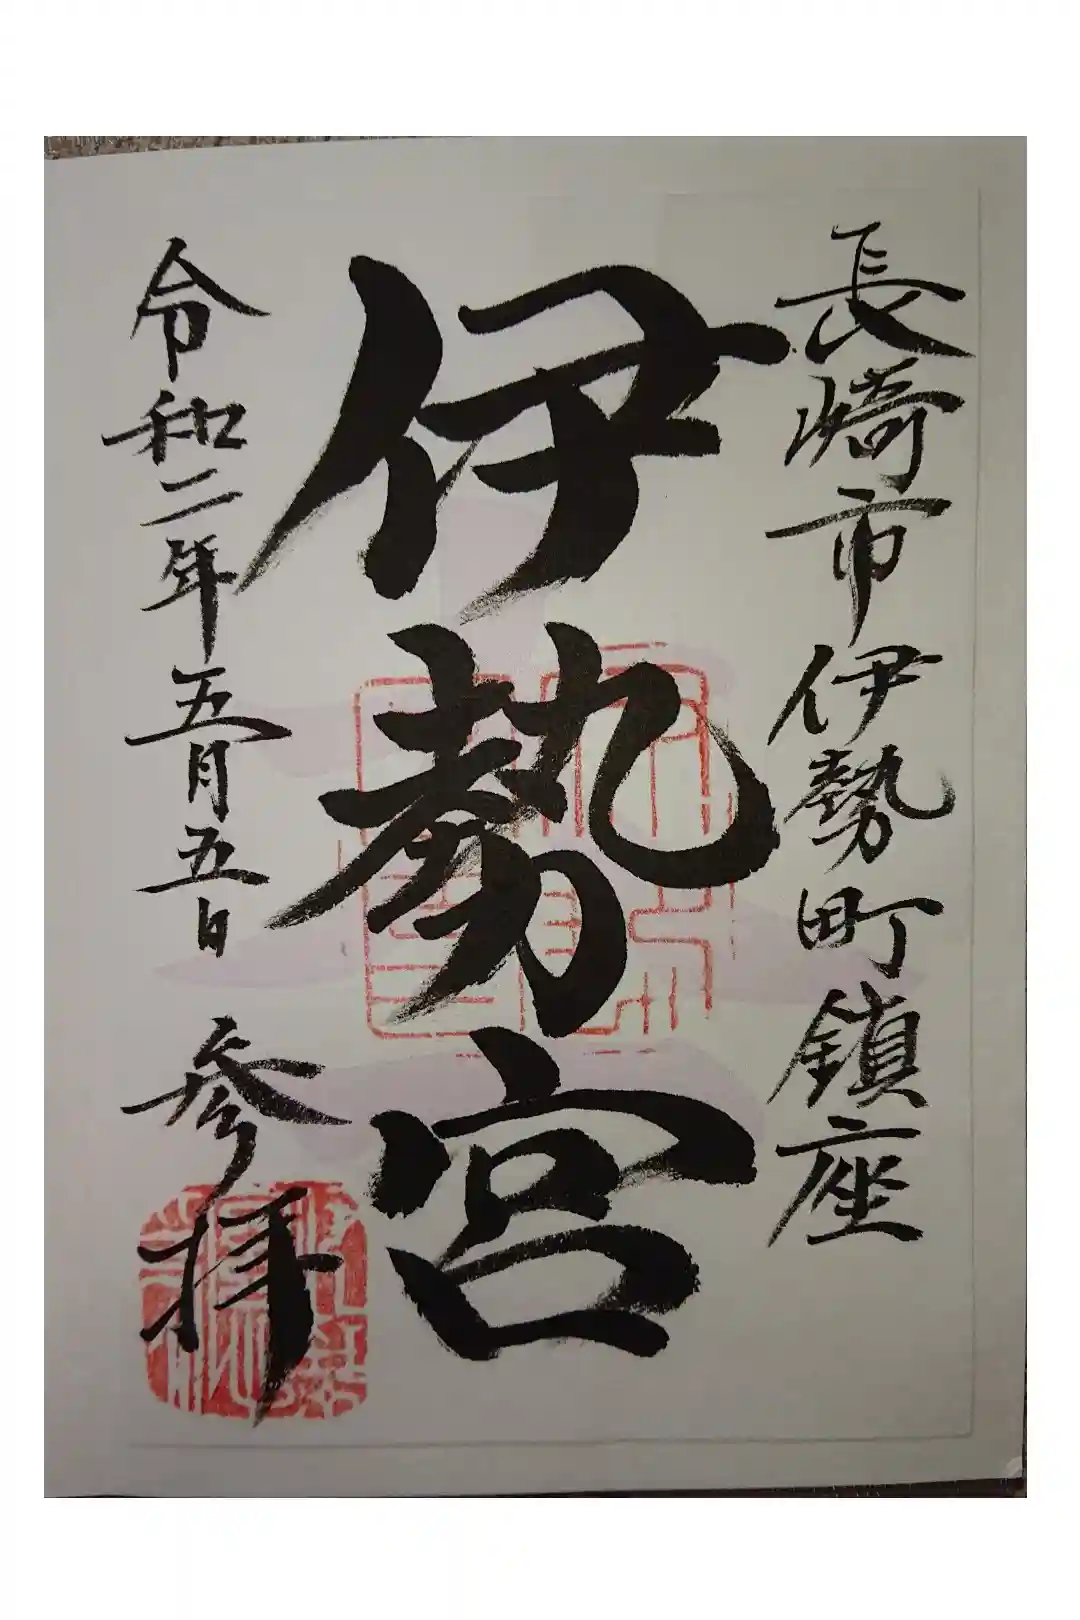 長崎市伊勢町鎮座
伊勢宮
令和二年五月五日 参拝